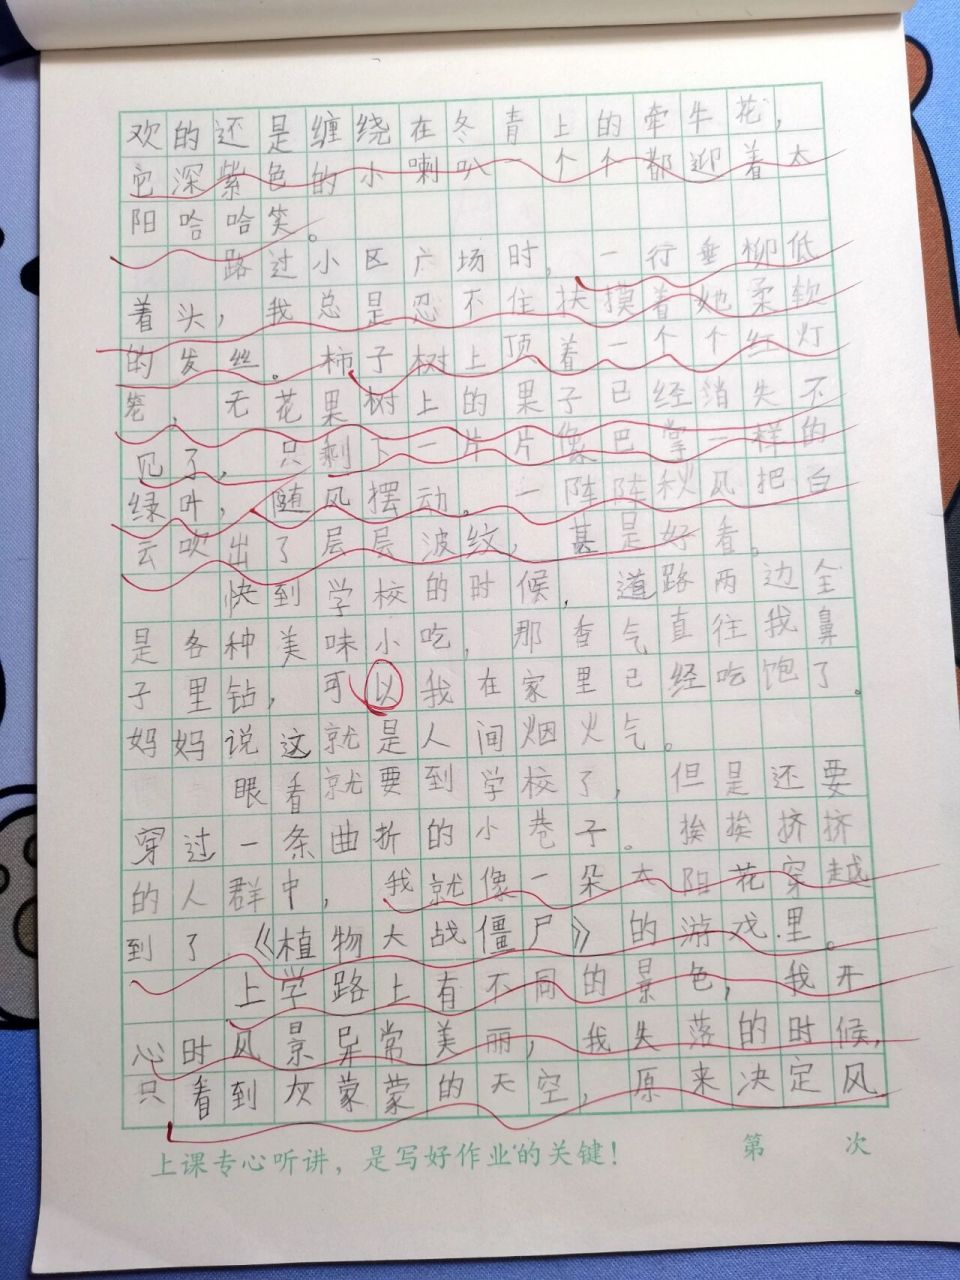 欢的还是缠绕在冬青上的牵牛花，
它深紫色的小喇叭一个个都迎着太
阳哈哈笑。
路过小区广场时，一行垂柳低
着头，我总是忍不住扶摸着她柔软
的发丝。柿子树上顶着一个个红灯
笼，无花果树上的果子已经消失不
见了，只剩下一片片像巴掌一样的
绿叶，随风摆动。一阵阵秋风把白
云吹出了层层波纹，甚是好看。
快到学校的时候，道路两边全
是各种美味小吃，那香气直往我鼻
子里钻，可以我在家里已经吃饱了。
妈妈说这就是人间烟火气。
眼看就要到学校了，但是还要
穿过一条曲折的小巷子。挨挨挤挤
的人群中，我就像一朵太阳花穿越
到了《植物大战僵尸》的游戏里。
上学路上有不同的景色，我开
心时风景异常美丽，我失落的时候，
只看到灰蒙蒙的天空，原来决定风
上课专心听讲，是写好作业的关键！
第 次